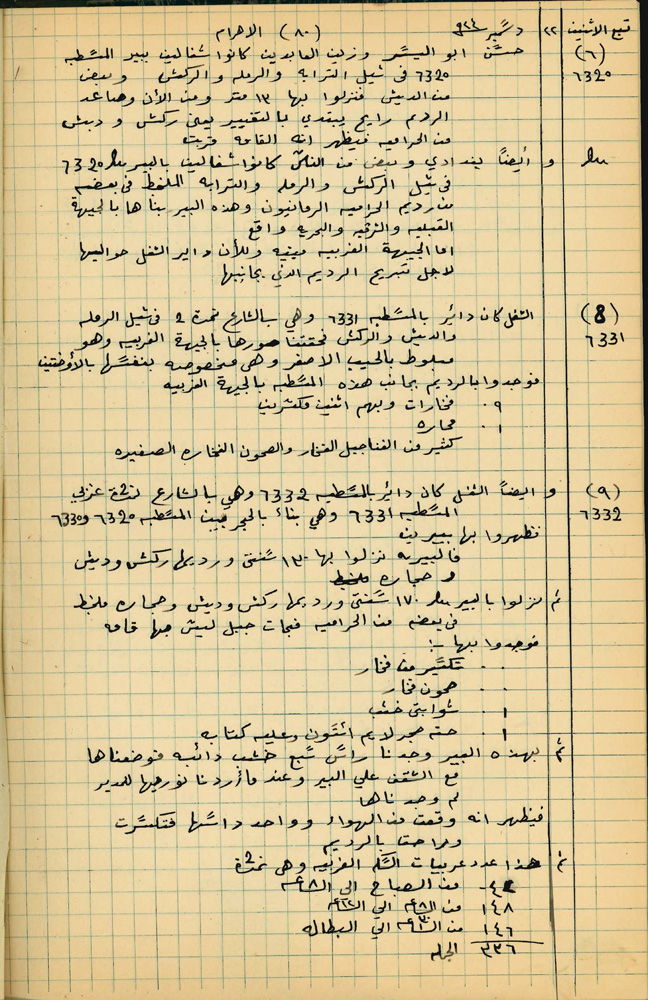 تبع الاثنين ٢٢ دسمبر ٩٢٤ (٨٠) الاهرام
(٦) حسن ابو اليسر وزين العابدين كانوا شغالين ببير المسطبه
6320 6320 فى شيل الترابه والرمله والركش وبعض
من الدبش فنزلوا بها ١٣ متر ومن الأن وصاعد
الرديم رايح يبتدي بالتغيير يعنى ركش ودبش
من الحراميه فيظهر انه القامه قربت
و أيضاً بغدادي وبعض من الناس كانوا شغالين بالبير 6320
فى شيل الركش والرمله والترابه الملخبط فى بعضه
من رديم الحراميه الرمانيون وهذه البير بناها بالجيهة
القبليه والشرقيه والبحريه واقع
اما الجيهة الغربيه مبنيه وللأن داير الشغل حواليها
لاجل تسريح الرديم الذي بجانبها
(8) الشغل كان دائر بالمسطبه 6331 وهي بالشارع نمرة 2 فى شيل الرمله
6331 والدبش والركش فحققنا سورها بالجيهة الغربيه وهو
مبلوط بالحيب الاصفر وهى مخصوصه بنفسها بالأوضتين
فوجدوا بالرديم بجانب هذه المسطبه بالجيهة الغربيه
٩ فخارات وبهم اثنين مكسرين
١ محاره
كثير من الفناجيل الفخار والصحون الفخاره الصغيره
(٩) و ايضاً الشغل كان دائر بالمسطبه 6332 وهي بالشارع نمرة 2 غربي
6332 المسطبه 6331 وهي بناء بالحجر بين المسطبه 6320 و 6330
فظهروا بها بيرين
فالبيريه نزلوا بها ١٣٠ سنتى ورديمها ركش ودبش
و حجاره ملخبط
ثم نزلوا بالبير ١٧٠ سنتى ورديمها ركش ودبش وحجاره ملخبط
فى بعضه من الحراميه فجات جبل لسى منها قامه
فوجدوا بها :-
٠٠ تكسير من فخار
٠٠ صحون فخار
١ شوابتى خشب
١ حته حجر لايم استون وعليه كتابه
ثم بهذه البير وجدنا راس سبع خشب دائبه فوضعناها
مع الشقف علي البير وعند ما أردنا نوريها للمدير
لم وجدناها
فيظهر انه وقعت من الهواء وواحد داسها فتكسرت
وراحت بالرديم
ثم هذا عدد عربيات السكه الغربيه وهى نمرة 2
٤٢ من الصباح الى الساعه ٨
١٤٨ من الساعه ٨ الي الساعه ١٢
١٤٦ من الساعه الي البطاله
٣٣٦ الجمله